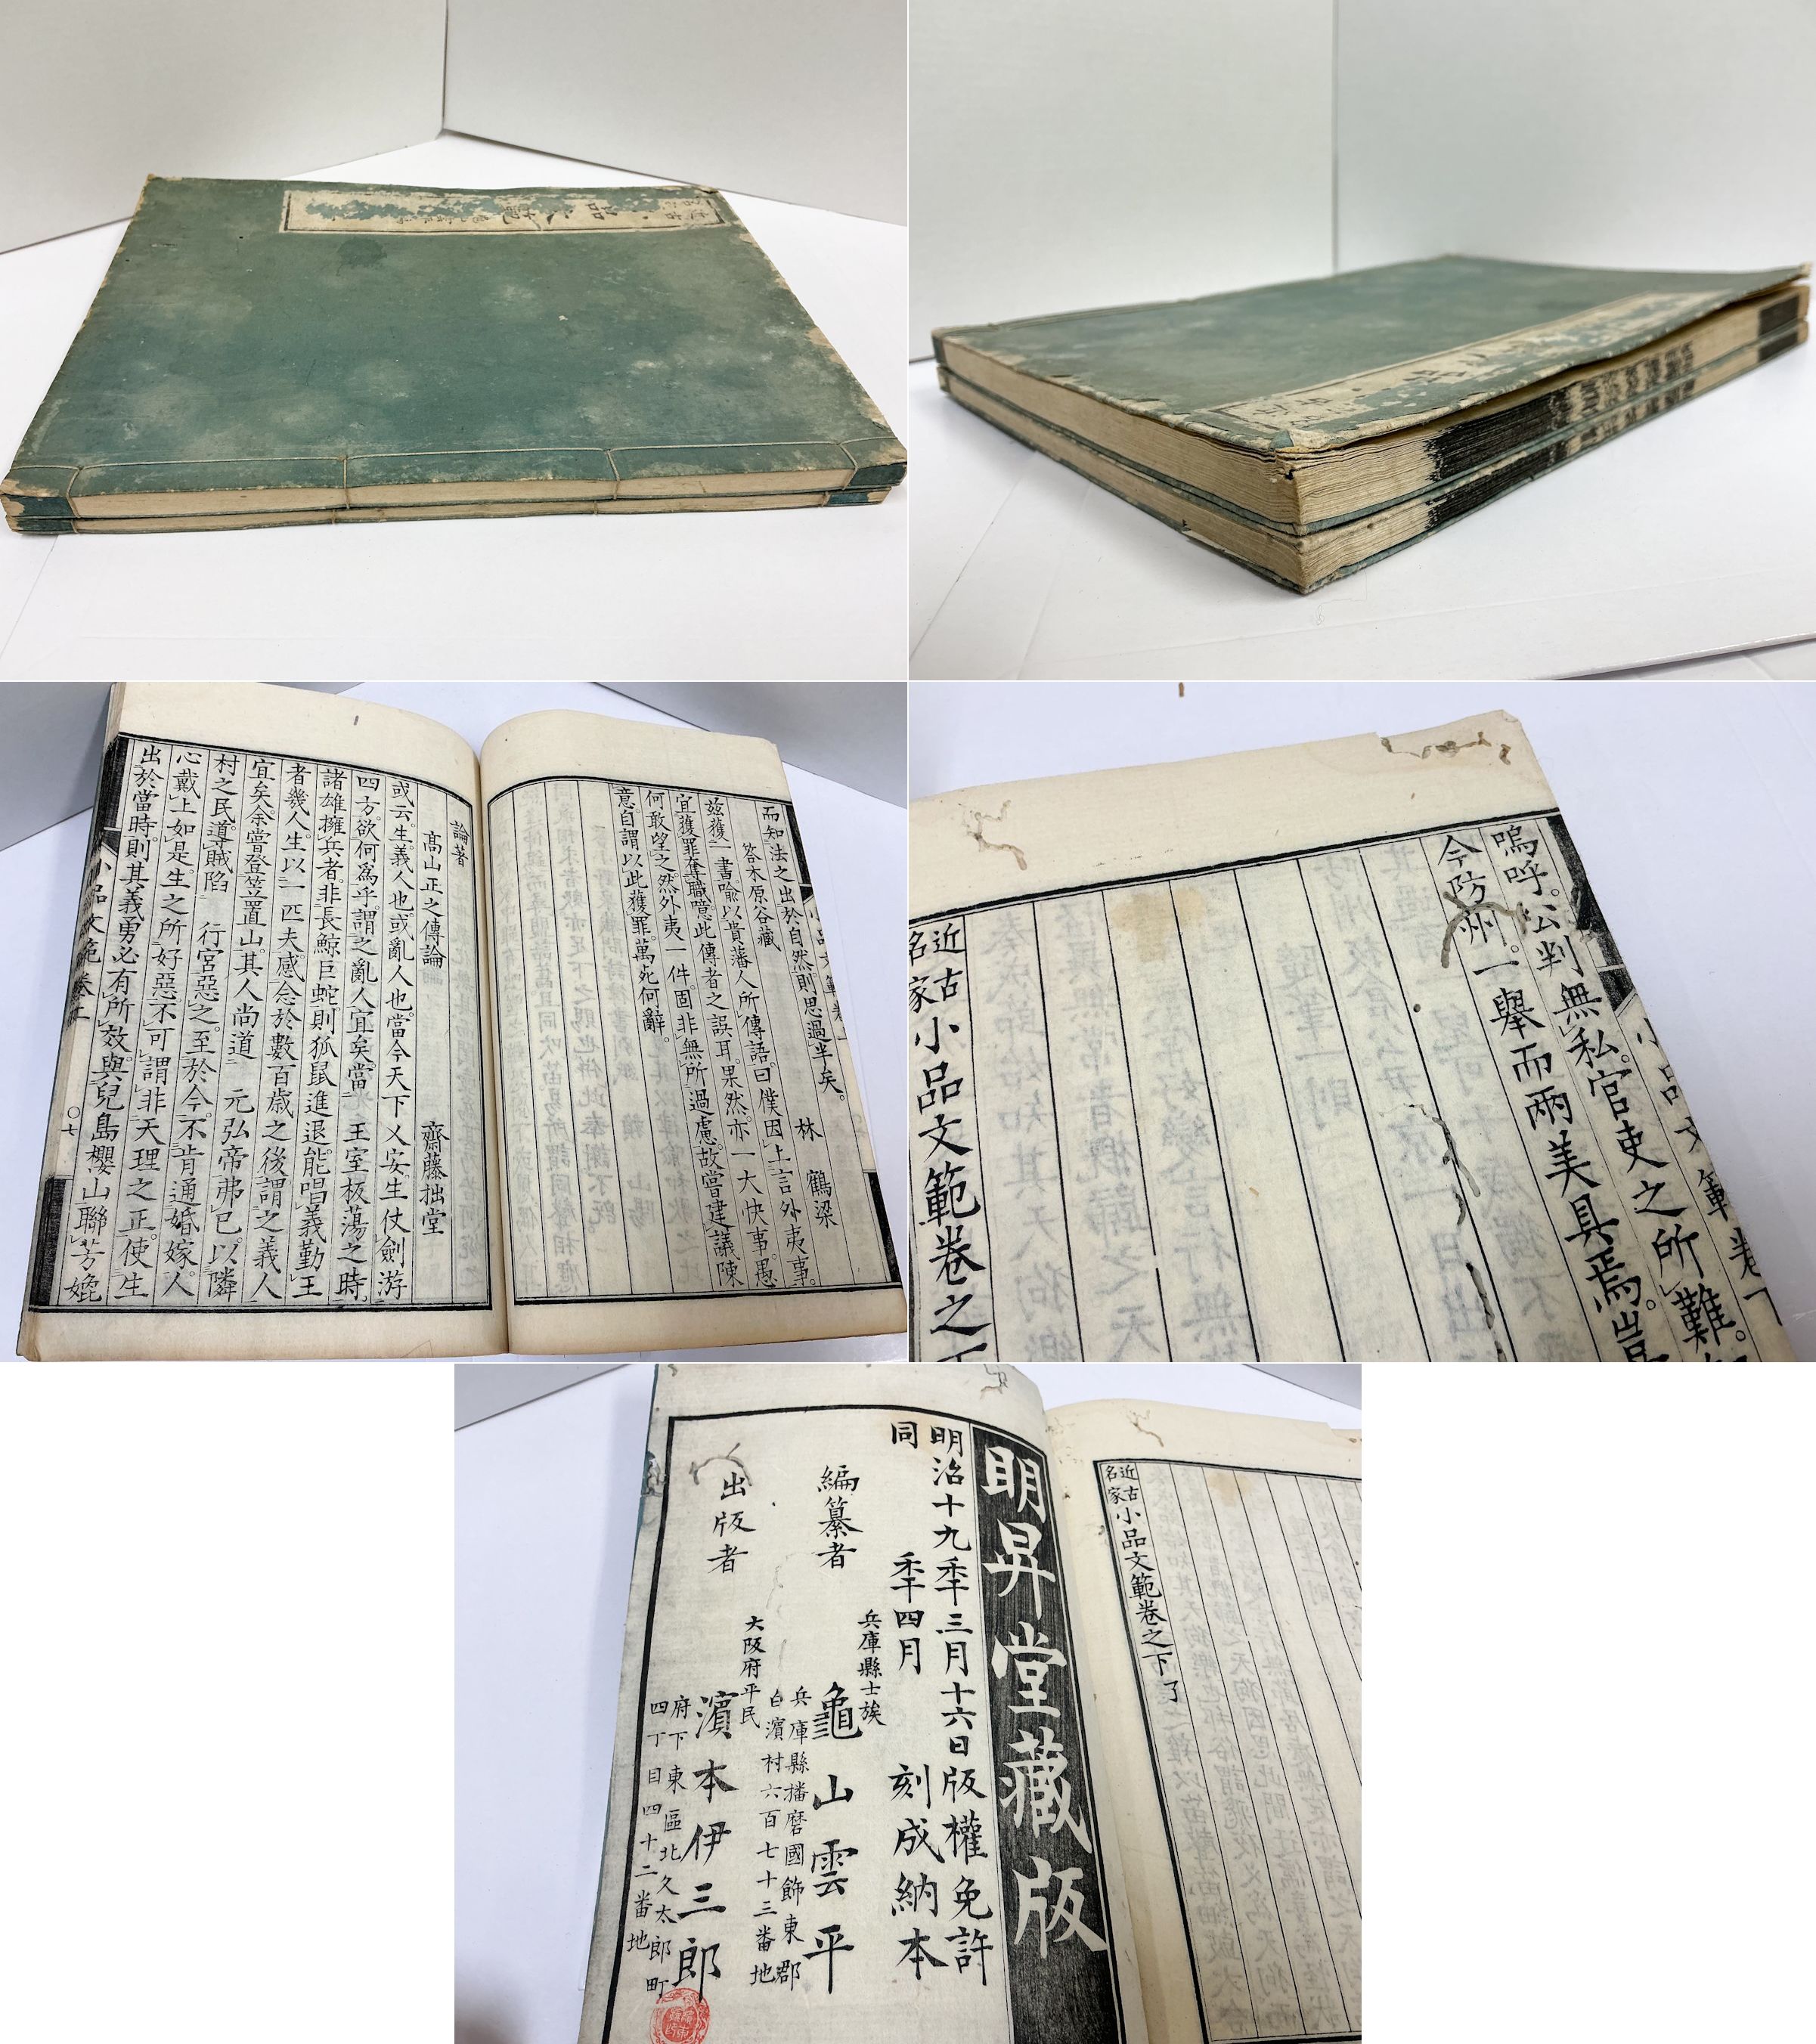 而知法之出於自然則思過半矣。
答木原谷藏 林 鶴梁
茲獲一書喩以貴藩人所傳語曰僕因上言外夷事。
宜獲罪奪職噫此傳者之誤耳。果然亦一大快事。愚
何敢望之。然外夷一件。固非無所過慮。故嘗建議陳
意自謂以此獲罪。萬死何辭。
論著
高山正之傳論 齋藤拙堂
或云。生。義人也。或亂人也。當今天下乂安。生仗劍游
四方。欲何爲乎。謂之亂人宜矣。當 王室板蕩之時。
諸雄擁兵者。非長鯨巨蛇。則狐鼠進退。能唱義勤王
者幾人。生以一匹夫。感念於數百歳之後。謂之義人
宜矣。余嘗登笠置山。其人尚道 元弘帝弗已。以隣
村之民。導賊陷 行宮。惡之。至於今。不肯通婚嫁。人
心戴上如是。生之所好惡。不可謂非天理之正。使生
出於當時。則其義勇必有所效。與兒島櫻山聯芳媲
小品文範卷上
〇七
小品文範卷下
嗚呼。公判無私。官吏之所難。
今防州。一舉而兩美具焉。豈
近古名家小品文範卷之下
近古名家小品文範卷之下 了
明昇堂藏版
明治十九秊三月十六日版權免許
同 秊四月 刻成納本
兵庫縣士族
編纂者 龜山雲平
兵庫縣播磨國飾東郡
白濱村六百七十三番地
大阪府平民
出版者 濱本伊三郎
府下東區北久太郎町
四丁目四十二番地